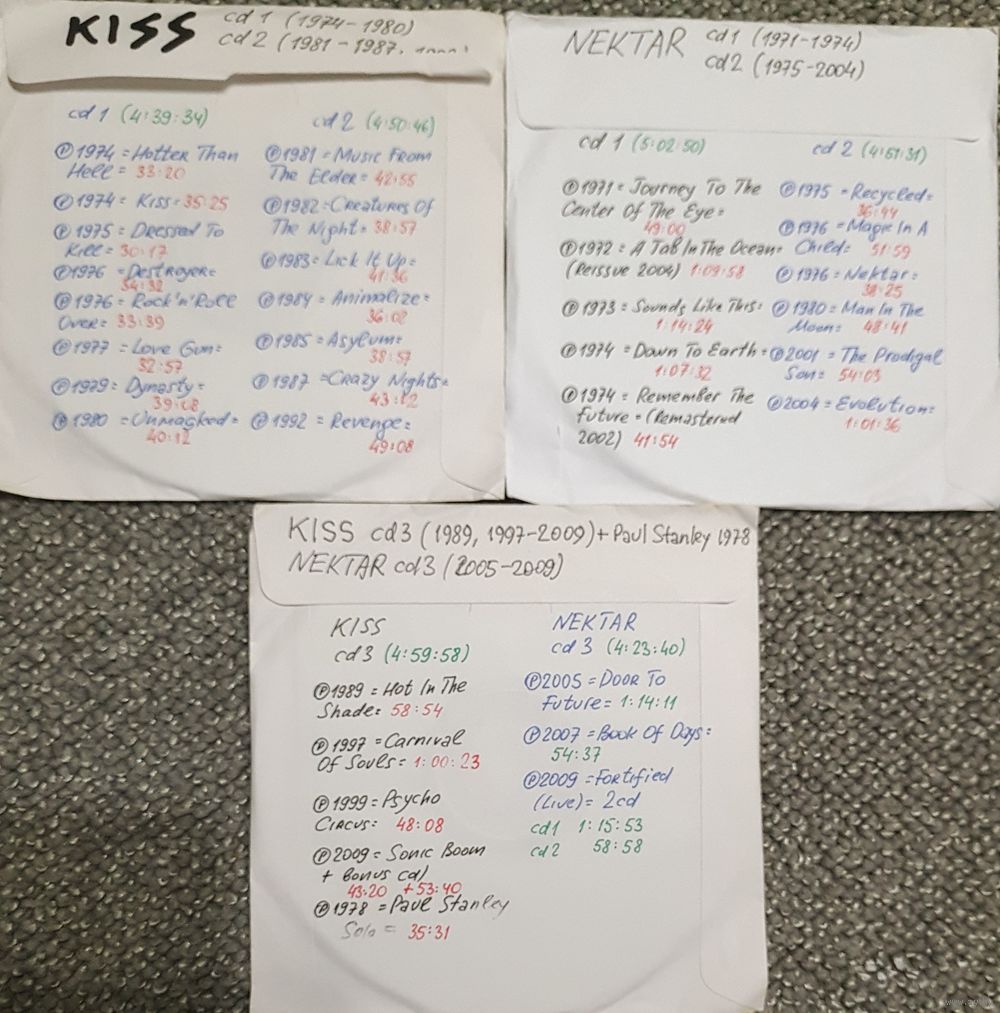 KISS cd 1 (1974-1980)
cd 2 (1981-1987,
cd 1 (4:39:34)
Ⓟ1974 = Hotter Than
Hell = 33:20
Ⓟ1974 = Kiss = 35:25
Ⓟ1975 = Dressed To
Kill = 30:17
Ⓟ1976 = Destroyer =
34:32
Ⓟ1976 = Rock'n'Roll
Over = 33:39
Ⓟ1977 = Love Gun =
32:57
Ⓟ1979 = Dynasty =
39:08
Ⓟ1980 = Unmasked =
40:12
cd 2 (4:50:46)
Ⓟ1981 = Music From
The Elder = 42:55
Ⓟ1982 = Creatures Of
The Night = 38:57
Ⓟ1983 = Lick It Up =
41:36
Ⓟ1984 = Animalize =
36:02
Ⓟ1985 = Asylum =
38:57
Ⓟ1987 = Crazy Nights =
43:12
Ⓟ1992 = Revenge =
49:08
NEKTAR cd 1 (1971-1974)
cd 2 (1975-2004)
cd 1 (5:02:50)
Ⓟ1971 = Journey To The
Center Of The Eye =
49:00
Ⓟ1972 = A Tab In The Ocean =
(Reissue 2004) 1:09:58
Ⓟ1973 = Sounds Like This =
1:14:24
Ⓟ1974 = Down To Earth =
1:07:32
Ⓟ1974 = Remember The
Future = (Remastered
2002) 41:54
cd 2 (4:51:31)
Ⓟ1975 = Recycled =
36:44
Ⓟ1976 = Magic In A
Child = 51:59
Ⓟ1976 = Nektar =
38:25
Ⓟ1980 = Man In The
Moon = 48:41
Ⓟ2001 = The Prodigal
Son = 54:03
Ⓟ2004 = Evolution =
1:01:36
KISS cd 3 (1989, 1997-2009) + Paul Stanley 1978
NEKTAR cd 3 (2005-2009)
KISS
cd 3 (4:59:58)
Ⓟ1989 = Hot In The
Shade = 58:54
Ⓟ1997 = Carnival
Of Souls = 1:00:23
Ⓟ1999 = Psycho
Circus = 48:08
Ⓟ2009 = Sonic Boom
+ Bonus cd)
43:20 + 53:40
Ⓟ1978 = Paul Stanley
Solo = 35:31
NEKTAR
cd 3 (4:23:40)
Ⓟ2005 = Door To
Future = 1:14:11
Ⓟ2007 = Book Of Days =
54:37
Ⓟ2009 = Fortified
(Live) = 2cd
cd 1 1:15:53
cd 2 58:58